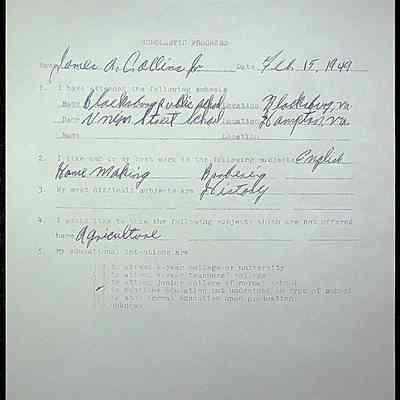 SCHOLASTIC PROGRESS
Name James A. Collins Jr Date Feb. 15, 1949
1. I have attended the following schools
Name Blacksburg Public School Location Blacksburg, Va.
Name Union Street School Location Hampton, Va.
Name Location
2. I like and do my best work in the following subjects English
Home Making
3. My most difficult subjects are History
4. I would like to take the following subjects which are not offered
here Agriculture
5. My educational intentions are
to attend 4-year college or university
to attend 4-year teachers' college
to attend junior college or normal school
to continue education but undecided on type of school
to end formal education upon graduation
unknown